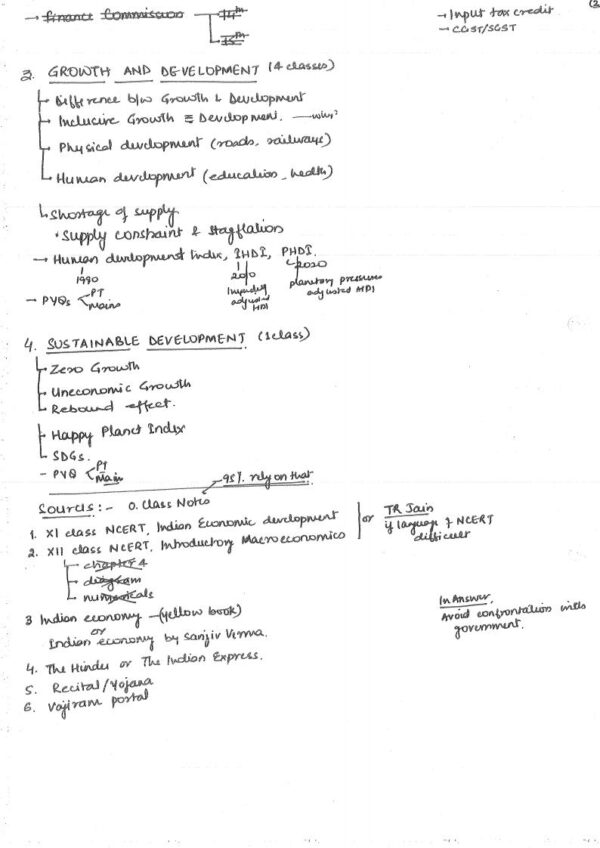 → Finance Commission 14th
15th
→ Input tax credit
→ CGST/SGST
3. GROWTH AND DEVELOPMENT (4 classes)
Difference b/w Growth & Development
Inclusive Growth ≡ Development. —why?
Physical development (roads, railways)
Human development (education, health)
Shortage of supply
• Supply constraint & Stagflation
→ Human development Index, IHDI, PHDI.
1990
2010
2020
Inequality adjusted HDI
planetary pressures adjusted HDI
- PYQs PT
Mains
4. SUSTAINABLE DEVELOPMENT (1class)
Zero Growth
Uneconomic Growth
Rebound effect.
Happy Planet Index
SDGs.
- PYQ PT
Main
95% rely on that
Sources:- 0. Class Notes
1. XI class NCERT, Indian Economic development
2. XII class NCERT, Introductory Macroeconomics
or TR Jain
if language of NCERT
difficult
chapter 4
diagram
numericals
3 Indian economy -(yellow book)
or
Indian economy by Sanjiv Verma.
4. The Hindu or The Indian Express.
5. Recital/Yojana
6. Vajiram portal
In Answer,
Avoid confrontation with
government.